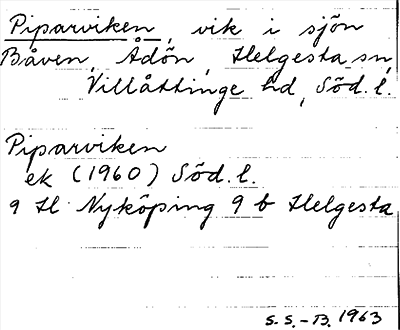 Piparviken, vik i sjön
Båven, Adön, Helgesta sn,
Villåttinge hd, Söd. l.
Piparviken
ek (1960) Söd. l.
9 H Nyköping 9 b Helgesta
S. S. - B. 1963